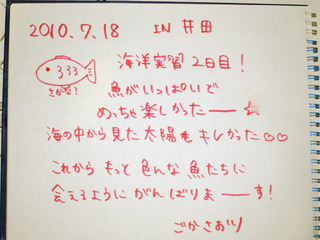 2010.7.18 IN 井田
333
海洋実習2日目！
魚がいっぱいで
めっちゃ楽しかったー☆
海の中から見た太陽もキレかった♡♡
これからもっと色んな魚たちに
会えるようにがんばりまーす！